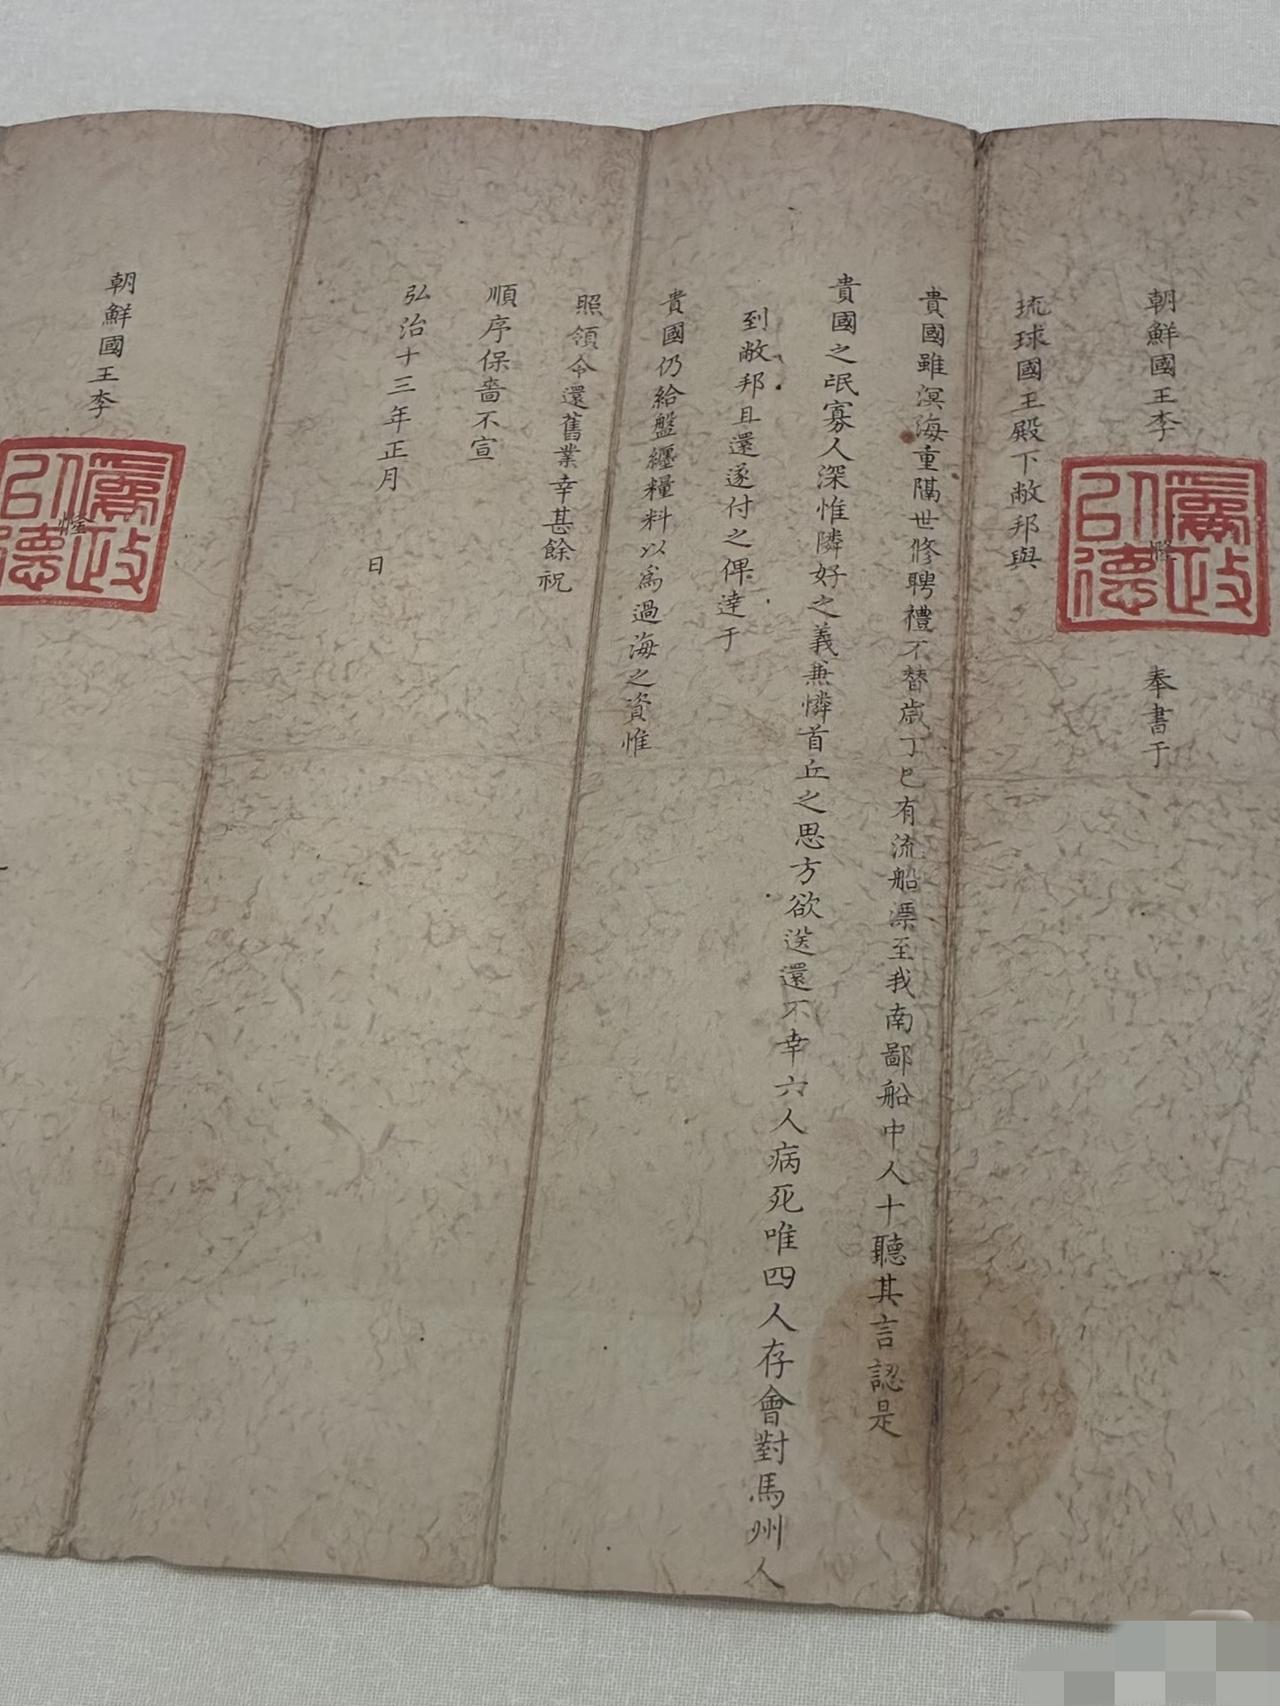 朝鮮國王李㦕奉書于
琉球國王殿下敝邦與
貴國雖溟海重隔世修聘禮不替歳丁巳有流船漂至我南鄙船中人十聽其言認是
貴國之氓寡人深惟隣好之義兼憐首丘之思方欲送還不幸六人病死唯四人存會對馬州人
到敝邦且還遂付之俾達于
貴國仍給盤纒糧料以爲過海之資惟
照領令還舊業幸甚餘祝
順序保嗇不宣
弘治十三年正月 日
朝鮮國王李㦕
爲政以德